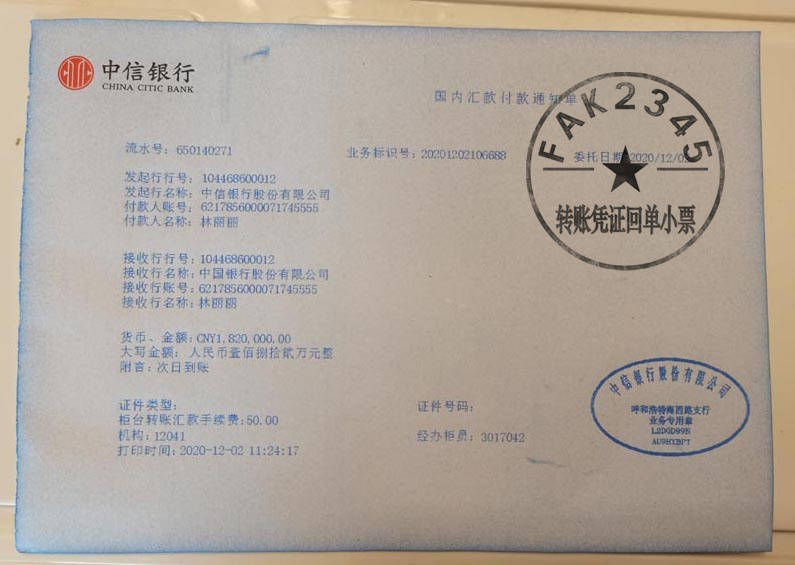 中信银行
CHINA CITIC BANK
国内汇款付款通知单
FAK2345
转账凭证回单小票
流水号：650140271
业务标识号：20201202106688
委托日期：2020/12/0
发起行行号：104468600012
发起行名称：中信银行股份有限公司
付款人账号：6217856000071745555
付款人名称：林丽丽
接收行行号：104468600012
接收行名称：中国银行股份有限公司
接收行账号：6217856000071745555
接收行名称：林丽丽
货币、金额：CNY1,820,000.00
大写金额：人民币壹佰捌拾贰万元整
附言：次日到账
证件类型：
证件号码：
柜台转账汇款手续费：50.00
机构：12041
经办柜员：3017042
打印时间：2020-12-02 11:24:17
中信银行股份有限公司
呼和浩特海西路支行
业务专用章